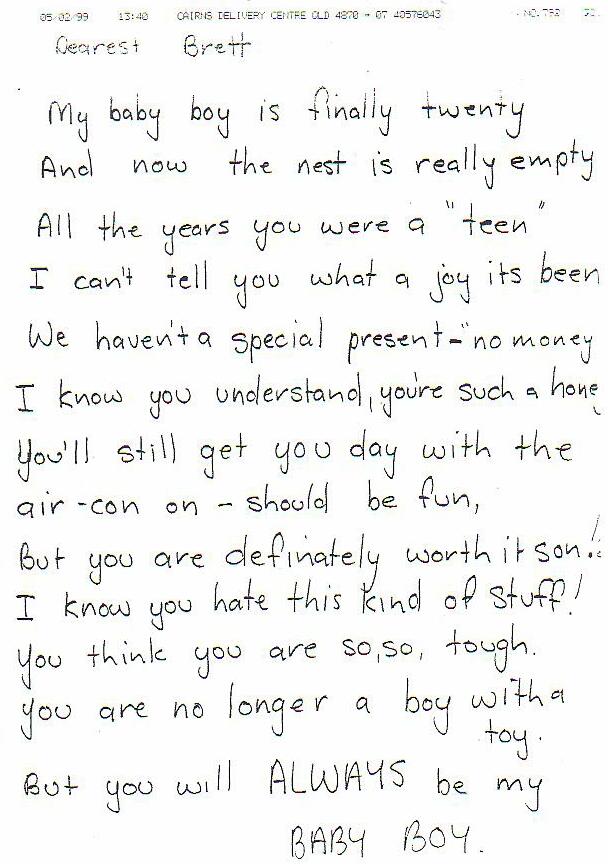 05/02/99 13:40 CAIRNS DELIVERY CENTRE QLD 4870 → 07 40576043 NO.792
Dearest Brett
My baby boy is finally twenty
And now the nest is really empty
All the years you were a "teen"
I can't tell you what a joy its been
We haven't a special present - "no money
I know you understand, you're such a hone
You'll still get you day with the
air-con on - should be fun,
But you are definately worth it son!
I know you hate this kind of stuff!
You think you are so, so, tough.
you are no longer a boy with a
toy.
But you will ALWAYS be my
BABY BOY.